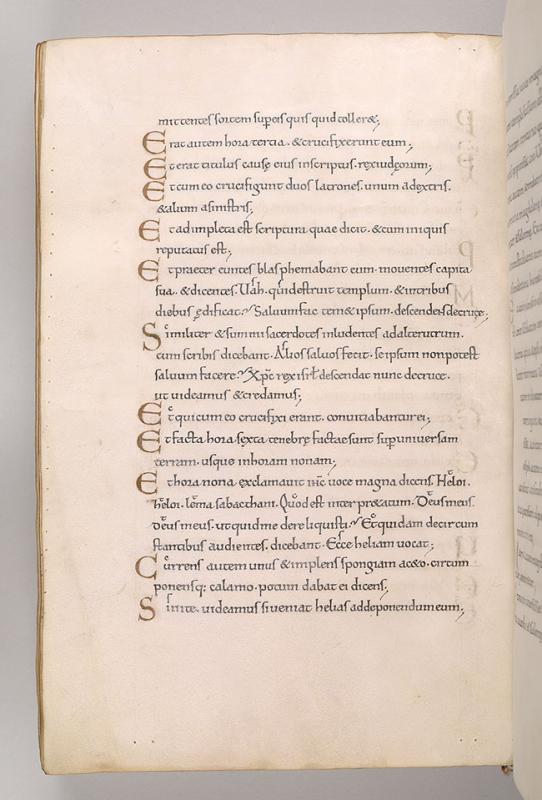 mittentes sortem super eis quis quid toller&;
Erat autem hora tertia · & crucifixerunt eum;
Et erat titulus causę eius inscriptus · rex iudęorum;
Et cum eo crucifigunt duos latrones · unum adextris ·
& alium asinistris;
Et adimpleta est scriptura quae dicit · & cum iniquis
reputatus est;
Et praeter euntes blasphemabant eum · mouentes capita
sua · & dicentes · Uah · qui destruit templum · & intribus
diebus ędificat · Saluum fac tem&ipsum · descendens decruce;
Similiter & summi sacerdotes inludentes adalterutrum ·
cum scribis dicebant · Alios saluos fecit · se ipsum non potest
saluum facere · Xpc rex isrl descendat nunc decruce ·
ut uideamus & credamus;
Et qui cum eo crucifixi erant · conuitiabantur ei;
Et facta hora sexta tenebrę factae sunt super uniuersam
terram · usque inhoram nonam;
Et hora nona exclamauit ihc uoce magna dicens · Heloi ·
heloi · lema sabacthani · Quod est interpr&atum · Deus meus ·
deus meus · ut quid me dereliquisti · Et quidam decircum
stantibus audientes · dicebant · Ecce heliam uocat;
Currens autem unus & implens spongiam ac&o · circum
ponensq; calamo · potum dabat ei dicens;
Sinite · uideamus si ueniat helias addeponendum eum;